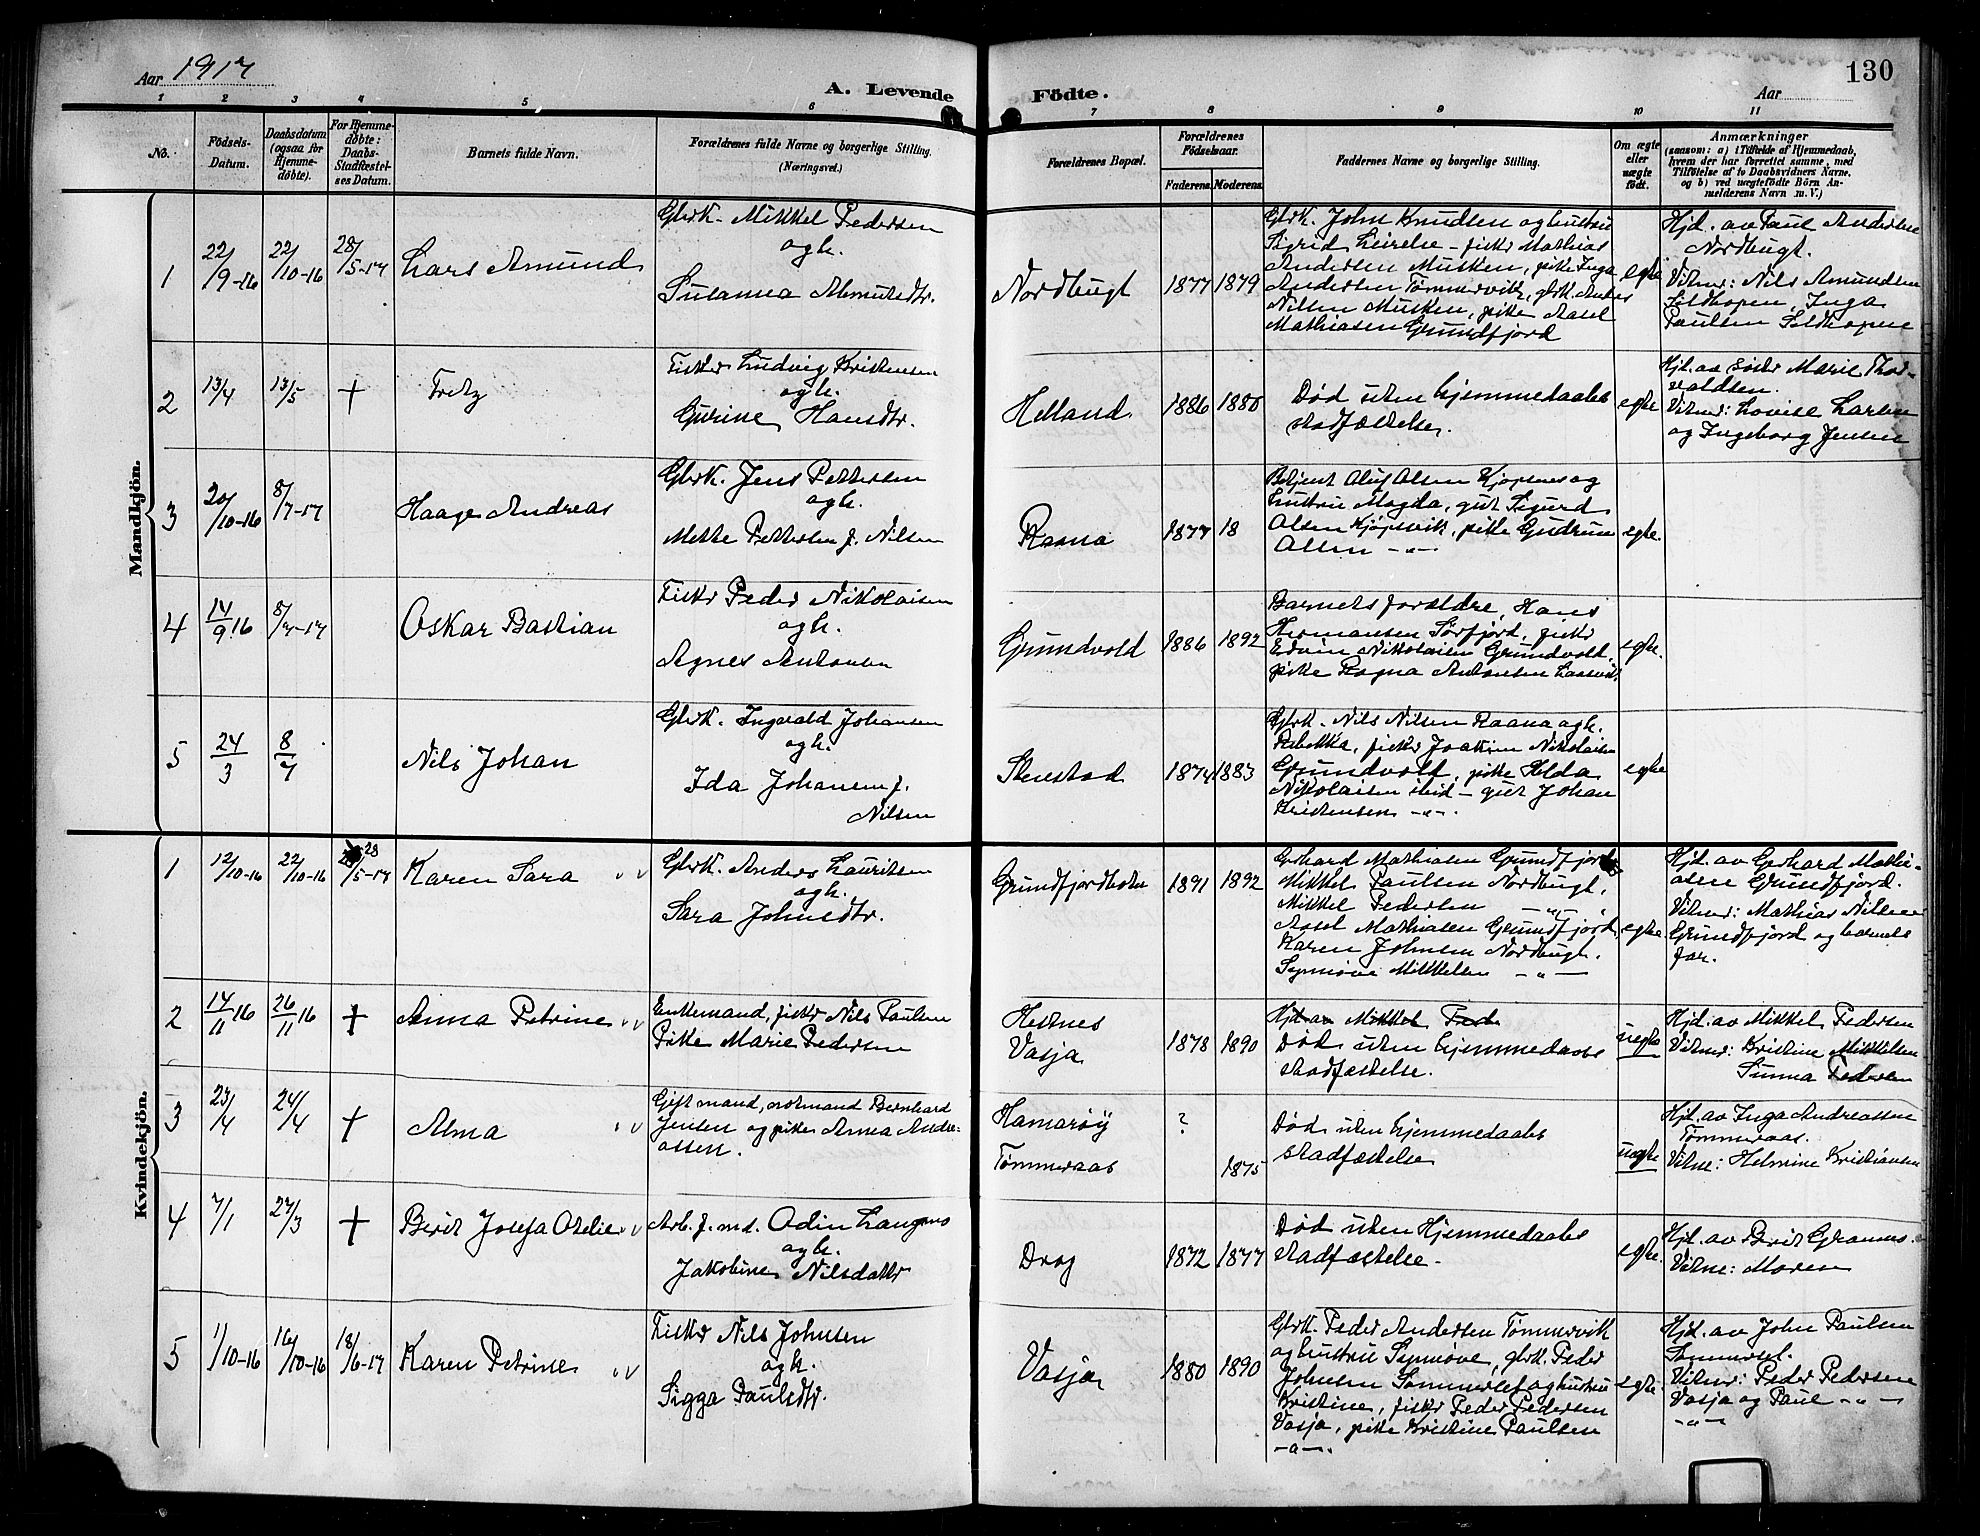 Aar 1917
A. Levende
Födte.
130
Aar
1 2 3 4 5 6 7 8 9 10 11
No.
Födsels-
Datum.
Daabsdatum
(ogsaa for
Hjemme-
döbte).
For Hjemme-
döbte:
Daabs-
Stadfæstel-
ses Datum.
Barnets fulde Navn.
Forældrenes fulde Navne og borgerlige Stilling.
(Næringsvei.)
Forældrenes Bopæl.
Forældrenes
Födselsaar.
Faderens. Moderens.
Faddernes Navne og borgerlige Stilling.
Om ægte
eller
uægte
födt.
Anmærkninger
(saasom: a) i Tilfælde af Hjemmedaab,
hvem der har forrettet samme, med
Tilföielse af to Daabsvidners Navne,
og b) ved uægtefödte Börn An-
melderens Navn m. V.)
Mandkjön.
1
22/9-16
22/10-16
28/5-17
Lars Amund
Gbrk. Mikkel Pedersen
og h.
Susanna Asmundsdtr.
Nordbugt
1877 1879
Gbrk. John Knudsen og hustru
Sigrid Leirelse – fisker Mathias
Andersen Musken, pike Inga
Andersen Tømmervik, gbrk. Anders
Nilsen Musken, pike Aasel
Mathiasen Grundfjord
egte
Hjd. av Paul Andersen
Nordbugt.
Vitner: Nils Amundsen
Sildhopen, Inga
Paulsen Sildhopen
2
13/4
13/5
+
Fritz
Fisker Ludvig Kristensen
og h.
Gurine Hansdtr.
Helland
1886 1880
Død uten hjemmedaabs
stadfæstelse.
egte
Hjd. av søster Marie Thor-
valdsen.
Vitner: Lovise Larsen
og Ingeborg Jensen
3
20/10-16
8/7-17
Haage Andreas
Gbrk. Jens Pettersen
og h.
Mette Pettersen f. Nilsen
Raana
1877 18
Betjent Aluf Olsen Kjøpsnes og
hustru Magda, gut Sigurd
Olsen Kjøpsvik, pike Gudrun
Olsen –"–
egte.
4
14/9 16
8/7-17
Oskar Bastian
Fisker Peder Nikolaisen
og h.
Agnes Antonsen
Grundvold
1886 1892
Barnets forældre, Hans
Hermansen Sørfjord, fisker
Edvin Nikolaisen Grundvold,
pike Ragna Antonsen
egte.
5
24/3
8/7
Nils Johan
Gbrk. Ingvald Johansen
og h.
Ida Johansen f.
Nilsen
Stenstad
1874 1883
Gbrk. Nils Nilsen Raana og h.
Rebekka, fisker Joakim Nikolaisen
Grundvold, pike Helda
Nikolaisen sted – gut Johan
Kristensen –"–.
egte
Kvindekjön.
1
12/10-16
22/10-16
28/5-17
Karen Sara
Gbrk. Anders Lauritsen
og h.
Sara Johnsdtr.
Grundfjordbotn
1891 1892
Gerhard Mathiasen Grundfjord
Mikkel Paulsen Nordbugt,
Mikkel Pedersen –"–
Aasel Mathiasen Grundfjord,
Karen Johnsen Nordbugt.
Synnøve Mikkelsen –"–
egte
Hjd. av Gerhard Mathi-
asen Grundfjord.
Vitner: Mathias Nilsen
Grundfjord og barnets
far.
2
17/11 16
26/11 16
+
Anna Petrine
Enkemand, fisker Nils Paulsen
Pike Marie Pedersen
Hestnes
Vasja
1878 1890
Hjd. av Mikkel Peds
Død uten hjemmedaabs
stadfæstelse.
uegte
Hjd. av Mikkel Pedersen
Vitner: Kristine Mikkelsen
Sunna Pedersen
3
23/4
24/4
+
Alma
Gift mand, notmand Bernhard
Jensen og pike Anna Andre-
assen.
Hamarøy
Tømmeraas
?
1875
Død uten hjemmedaabs
stadfæstelse
uegte
Hjd. av Inga Andreassen
Tømmeraas.
Vitne: Helmine Kristiansen
4
7/1
27/3
+
Berit Josefa Otelie
Arb. f. m. d. Odin Langmo
og h.
Jakobine Nilsdatter
Drag
1872 1877
Død uten Hjemmedaabs
stadfæstelse.
egte.
Hjd. av Berit Grannes.
Vitne: Moren
5
1/10-16
16/10-16
18/6-17
Karen Petrine
Fisker Nils Johnsen
og h.
Sigga Paulsdtr.
Vasja
1880 1890
Gbrk. Peder Andersen Tømmervik
og hustru Synnøve, gbrk. Peder
Johnsen Sommerset og hustru
Kristine, fisker Peder Pedersen
Vasja, pike Kristine Paulsen
–"–.
egte
Hjd. av John Paulsen
Sommerset.
Vitner: Peder Pedersen
Vasja og Paul –"–
–"–